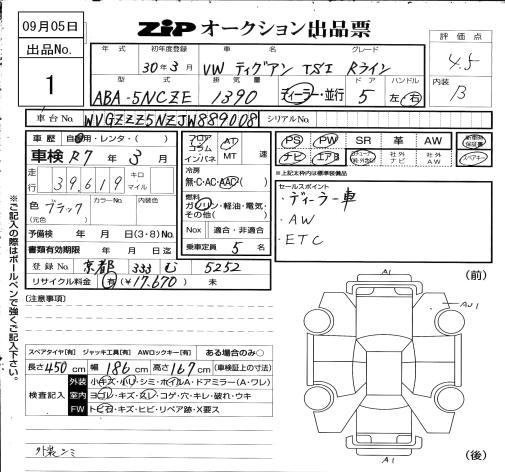 09月05日
ZiP オークション出品票
出品No.
1
年式 初年度登録 車名 グレード
30年3月 VW ティグアン TSI Rライン
評価点
4.5
内装
B
型式 排気量 ドア ハンドル
ABA-5NCZE 1390 ディーラー・並行 5 左・右
車台No. WVGZZZ5NZJW889008 シリアルNo.
車歴 自家用・レンタ・( )
車検 R7年 3月
走行 39,619 キロ マイル
色(元色) ブラック カラーNo. 内装色
予備検 年 月 日(3・8)No.
書類有効期限 年 月 日迄
登録No. 京都 333 む 5252
リサイクル料金 有(¥17,670) 未
フロア コラム インパネ AT MT 速
冷房
無・C・AC・AAC
燃料
ガソリン・軽油・電気・その他( )
Nox 適合・非適合
乗車定員 5 名
PS PW SR 革 AW
ナビ エアB 社外ナビ 社外AW
スペアキー
※上記太枠内は標準装備品
セールスポイント
・ディーラー車
・AW
・ETC
※ご記入の際はボールペンで強くご記入下さい。
[注意事項]
スペアタイヤ[有] ジャッキ工具[有] AWロックキー[有] ある場合のみ○
長さ450cm 幅186cm 高さ167cm (車検証上の寸法)
検査記入
外装 小キズ・小凹・シミ・ホイルA・ドアミラー(A・ワレ)
室内 ヨゴレ・キズ・スレ・コゲ・穴・キレ・破れ・ウキ
FW トビ石・キズ・ヒビ・リペア跡・X要ス
外装シミ
(前)
A1
AU1
A1
(後)